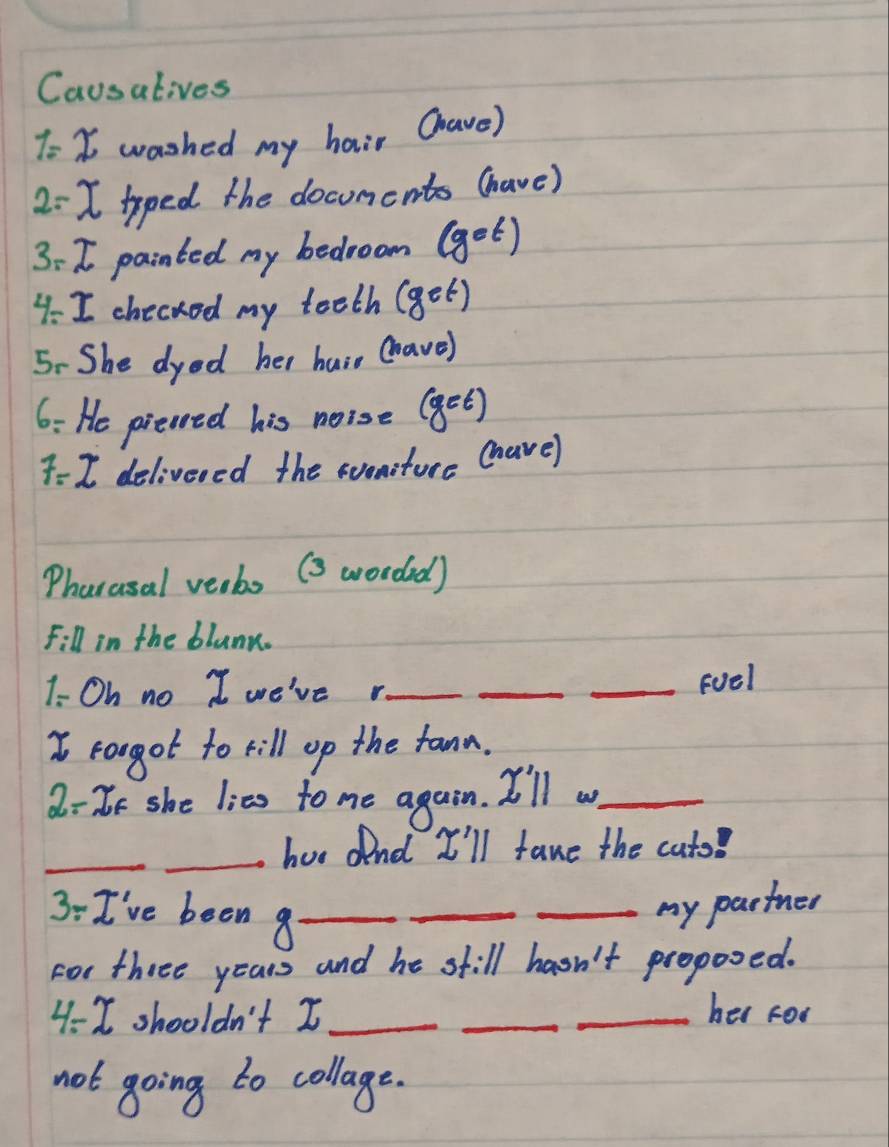 Causatives
1- I washed my hair (have)
2- I typed the documents (have)
3- I painted my bedroom (get)
4- I checked my teeth (get)
5- She dyed her hair (have)
6- He pierced his noise (get)
7- I delivered the furniture (have)
Pharasal verbs (3 worded)
Fill in the blank.
1- Oh no I we've r___ ___ ___ fuel
I forgot to fill up the tank.
2- If she lies to me again. I'll w___
___ ___ her and I'll take the cats!
3- I've been g___ ___ ___ my partner
for three years and he still hasn't proposed.
4- I shouldn't I___ ___ ___ her for
not going to collage.